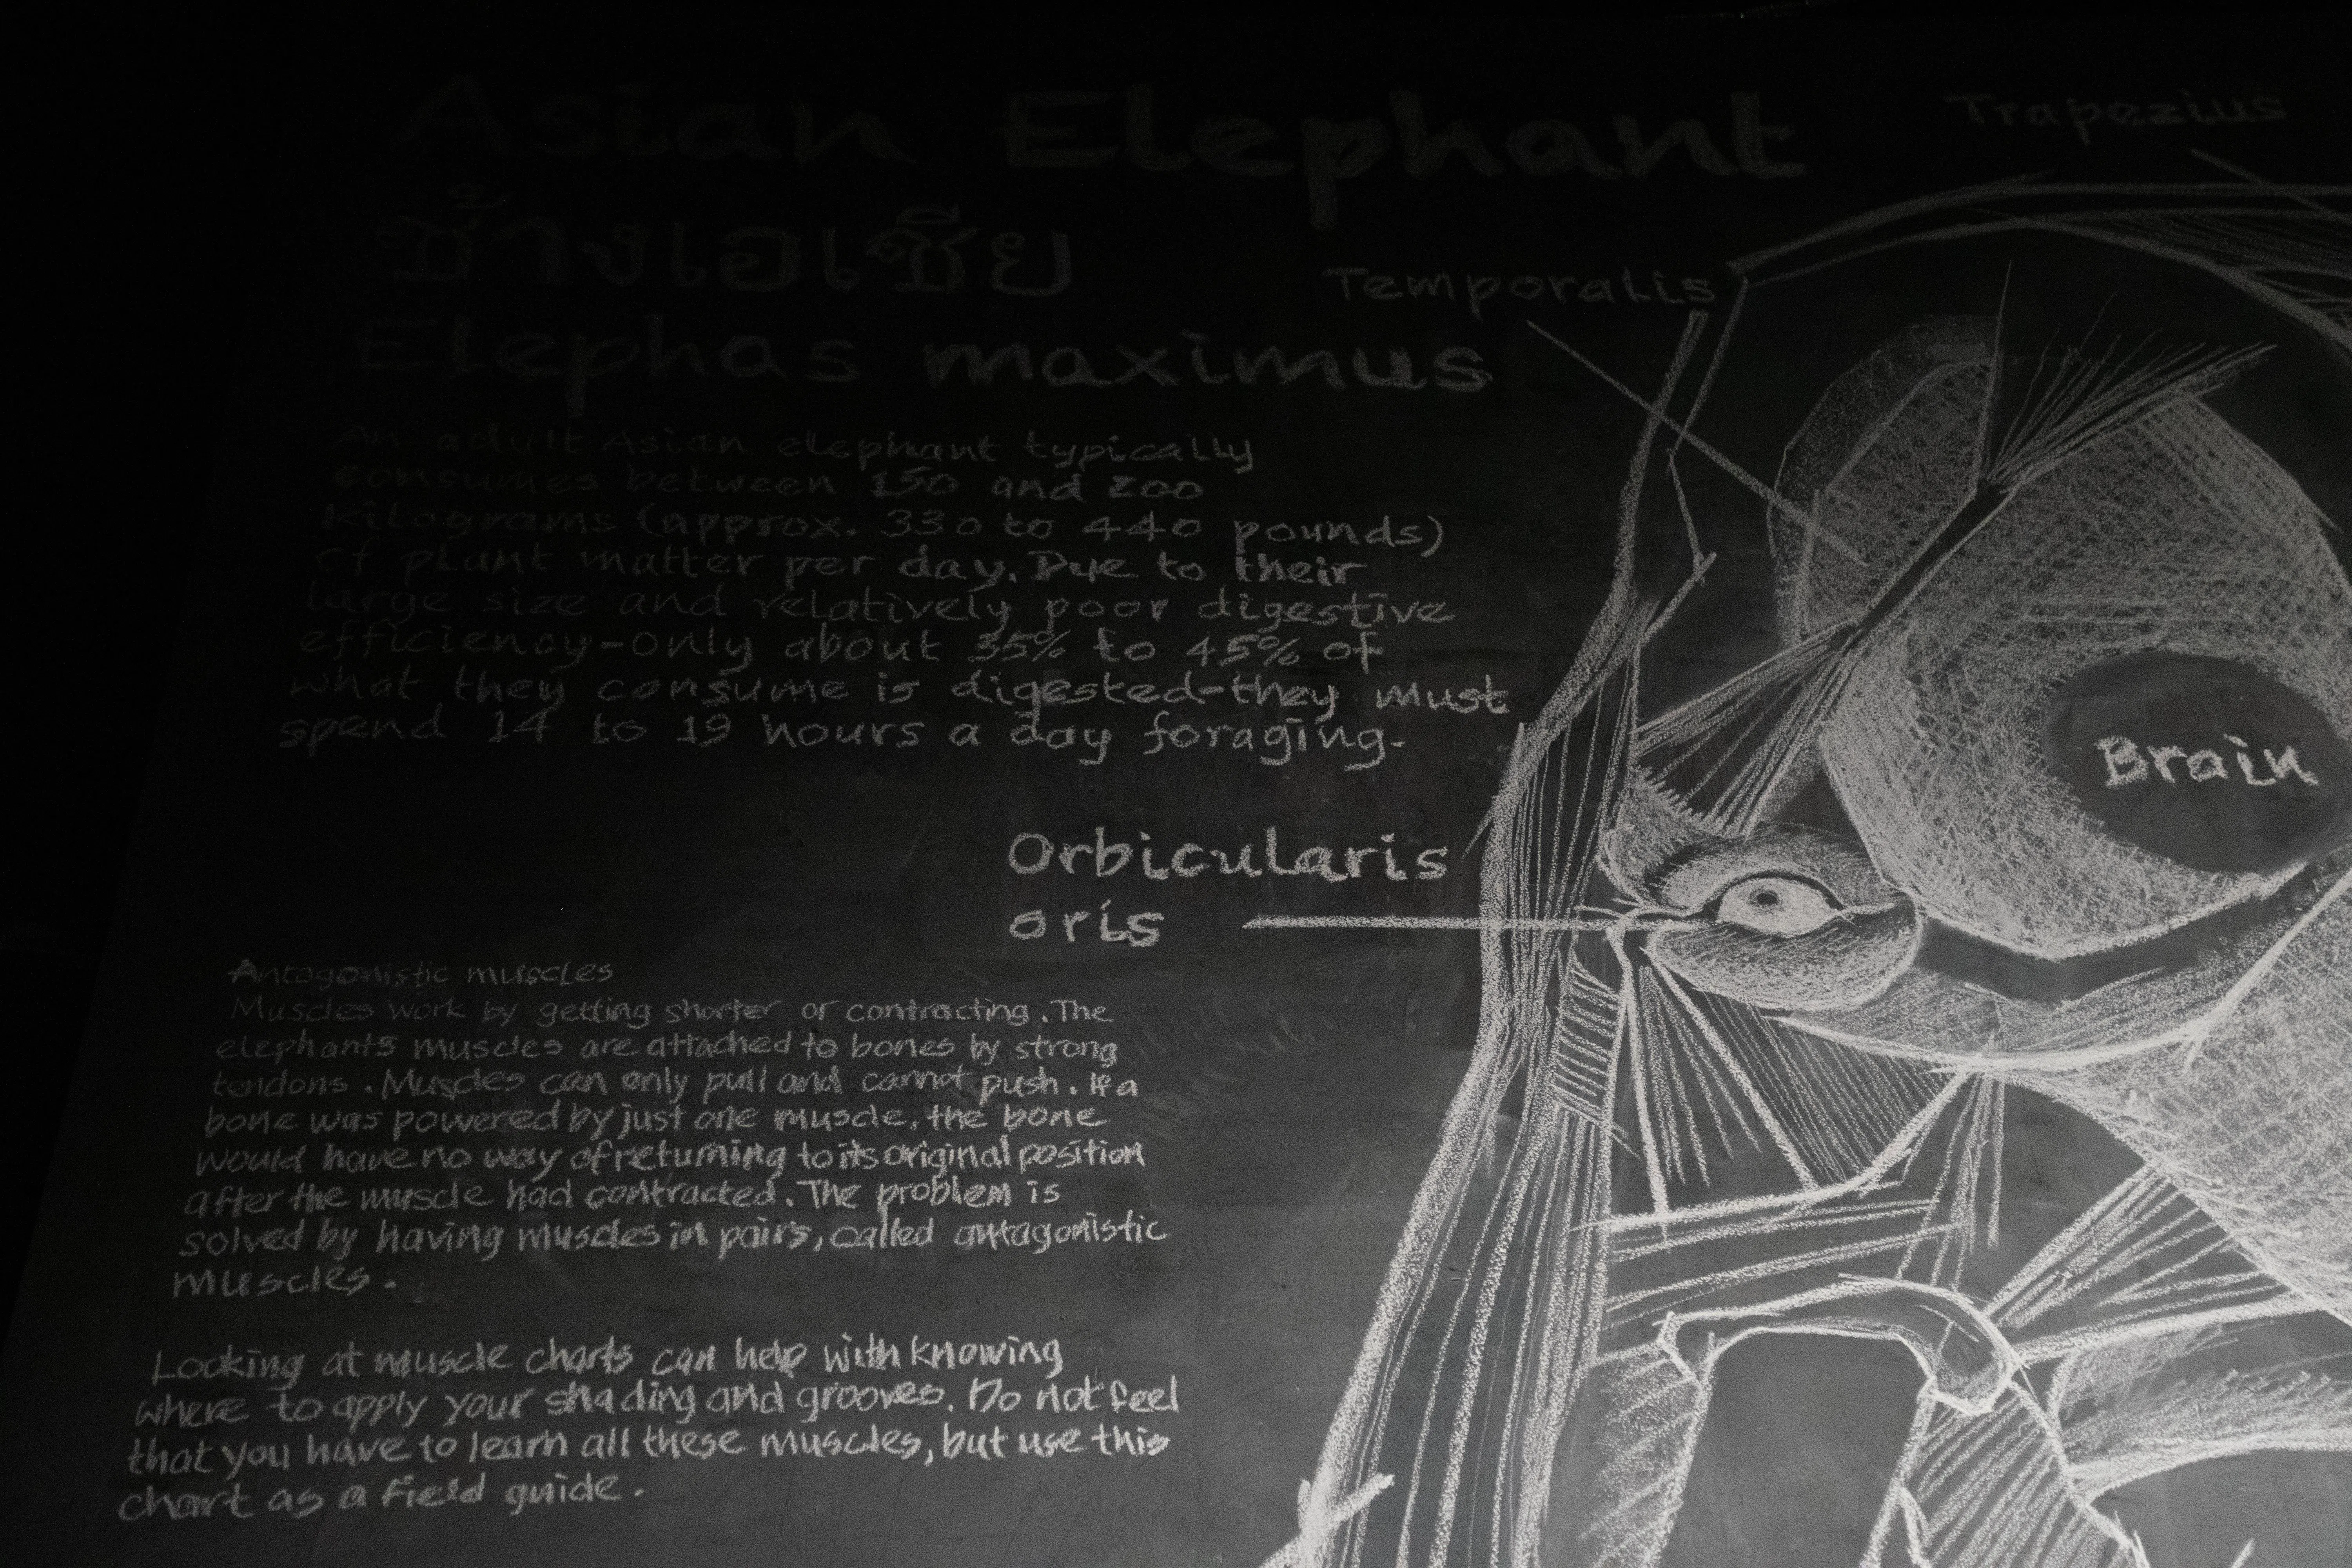 Asian Elephant
ช้างเอเชีย
Elephas maximus
Trapezius
Temporalis
An adult Asian elephant typically
consumes between 150 and 200
kilograms (approx. 330 to 440 pounds)
of plant matter per day. Due to their
large size and relatively poor digestive
efficiency-only about 35% to 45% of
what they consume is digested-they must
spend 14 to 19 hours a day foraging.
Brain
Orbicularis
oris
Antagonistic muscles
Muscles work by getting shorter or contracting. The
elephants muscles are attached to bones by strong
tendons. Muscles can only pull and cannot push. If a
bone was powered by just one muscle, the bone
would have no way of returning to its original position
after the muscle had contracted. The problem is
solved by having muscles in pairs, called antagonistic
muscles.
Looking at muscle charts can help with knowing
where to apply your shading and grooves. Do not feel
that you have to learn all these muscles, but use this
chart as a field guide.